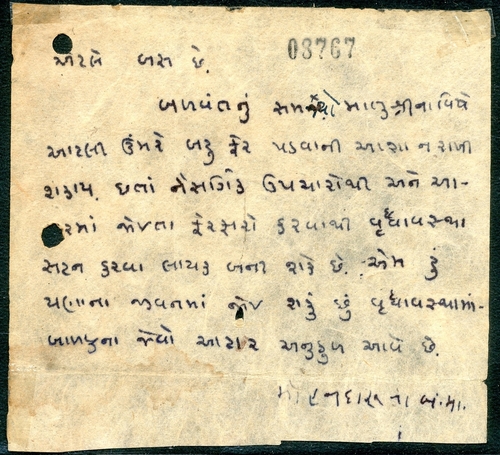 03767
એટલે બસ છે.
બળવંતનું સમજ્યો માતુશ્રીના વિષે
આટલી ઉંમરે બહુ ફેર પડવાની આશા ન રાખી
શકાય. છતાં નૈસર્ગિક ઉપચારોથી અને આ-
હારમાં જોઇતા ફેરફારો કરવાથી વૃધ્ધાવસ્થા
સહન કરવા લાયક બની શકે છે. એમ હું
ઘણાના જીવનમાં જોઇ શકું છું વૃધ્ધાવસ્થામાં
બાળકના જેવો આહાર અનુકુળ આવે છે.
મોહનદાસના બં.મા.